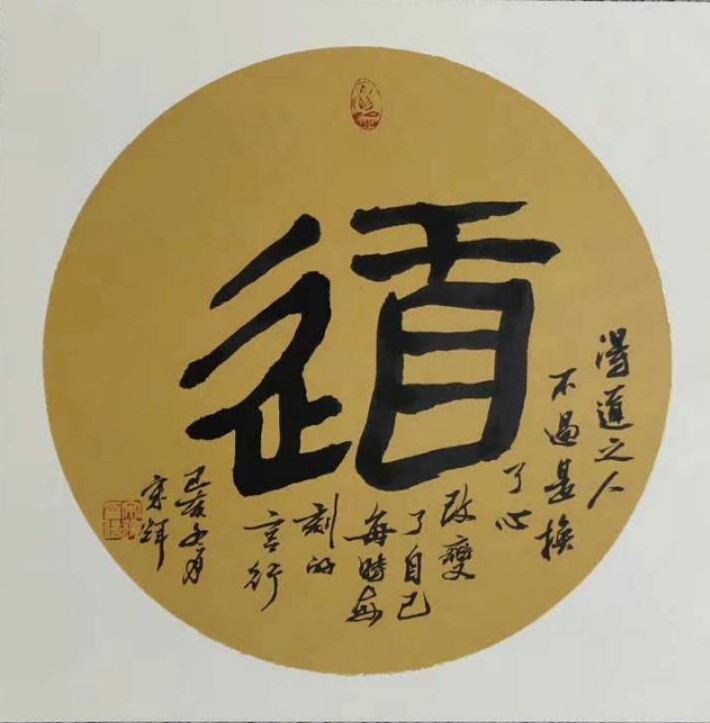 道
得道之人
不過是換
了心
改變
了自己
每時每
刻的
言行
己亥月
宋輝